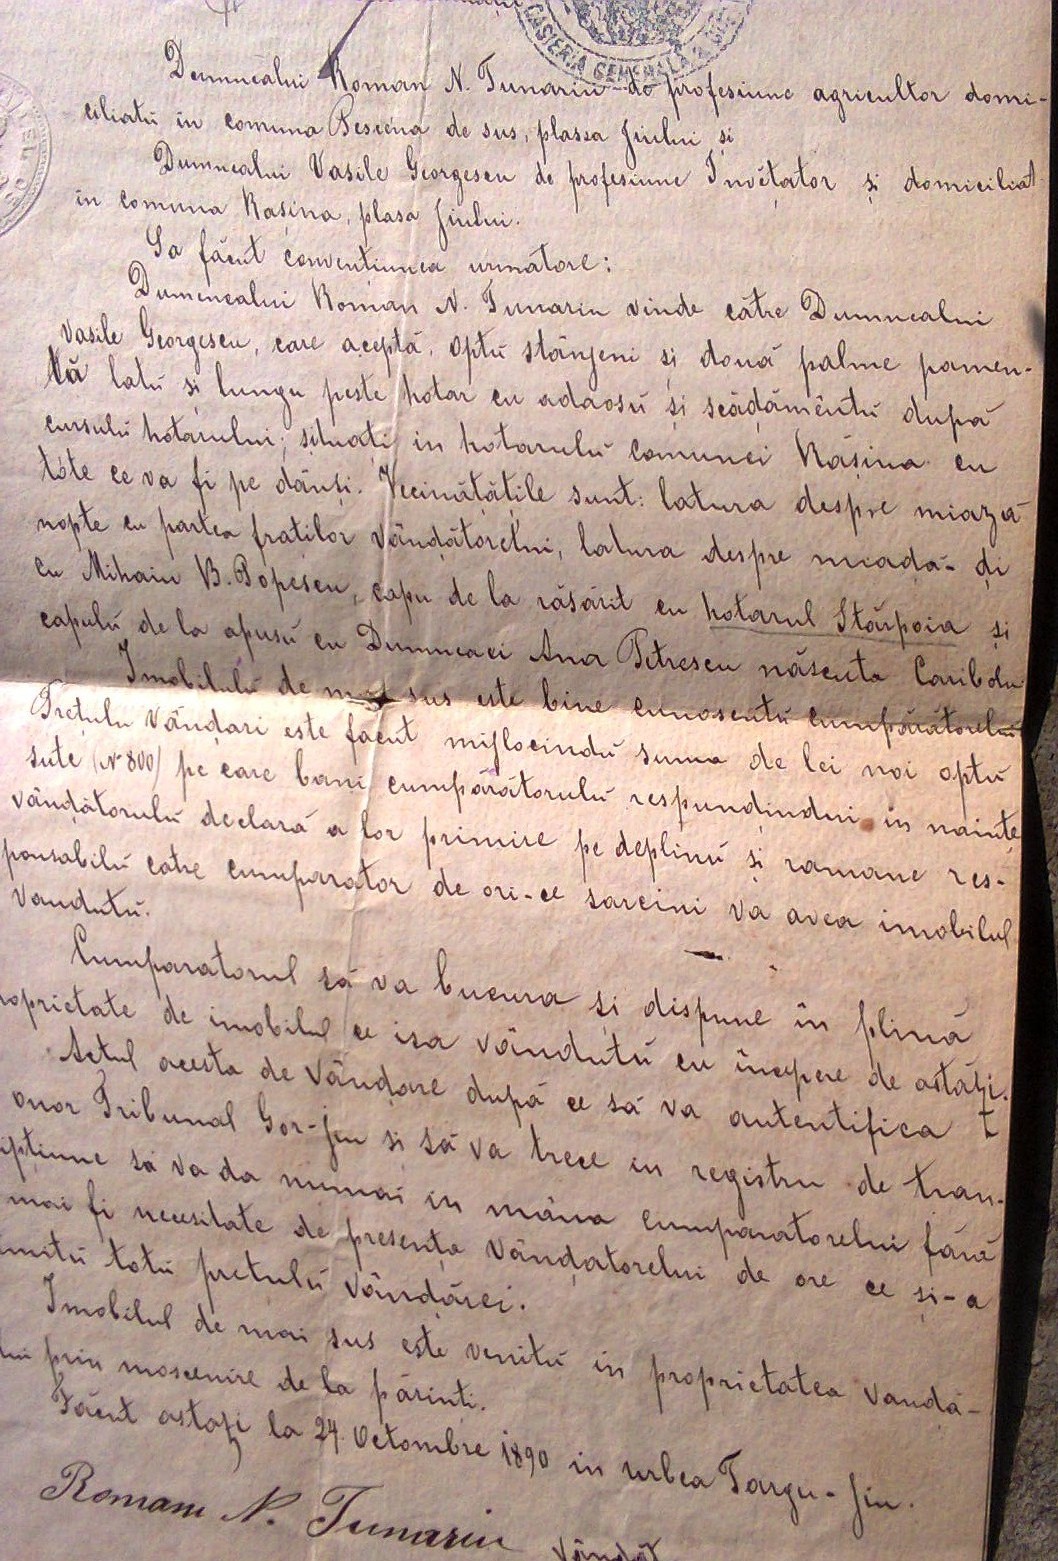 CASIERIA GENERALA
Dumnealui Roman N. Tunariu de profesiune agricultor domi-
ciliatu in comuna Pescena de sus, plassa Jiului și
Dumnealui Vasile Georgescu de profesiune Invêtator și domiciliat
in comuna Rașina, plasa Jiului.
Sa făcut convențiunea urmatore:
Dumnealui Roman N. Tunariu vinde către Dumnealui
Vasile Georgescu, care aceptă, optŭ stânjeni și două palme pamen-
tă latŭ și lungu peste hotar cu adaosŭ și scădămêntŭ după
cursulŭ hotarului; situați in hotarulŭ comunei Rășina cu
tóte ce va fi pe dânși. Vecinătățile sunt: latura despre miază
nopte cu partea fratilor vânḑătorelui, latura despre meadă-ḑi
cu Mihaiu B. Popescu, capu de la răsărit cu hotarul Stărpoia și
capulŭ de la apusŭ cu Dumneaei Ana Petrescu născuta
Imobilulŭ de mai sus este bine cunoscutŭ cumpărătorelui
Prețulu vânḑari este făcut mijlocindŭ suma de lei noi optŭ
sute (N 800) pe care bani cumpărătorulŭ respunḑindui in nainte
vânḑătorulŭ declară a lor primire pe deplinŭ și ramane res-
ponsabilŭ catre cumparator de ori-ce sarcini va avea imobilul
vandutŭ.
Cumparatorul să va bucura și dispune în plină
oprietate de imobilul ce isa vândutŭ cu începere de astăḑi.
Actul acesta de vânḑare după ce să va autentifica
onor Tribunal Gor-Jiu si să va trece in registru de tran-
ipțiune să va da numai in mâna cumparatorelui fără
mai fi necesitate de presența vânḑatorelui de ore ce și-a
imitŭ totŭ prețulŭ vânḑărei.
Imobilul de mai sus este venitŭ in proprietatea vandă-
lui prin moscenire de la părinți.
Făcut astaḑi la 24 Octombre 1890 in urbea Targu-Jiu.
Roman N. Tunariu
Vândăt